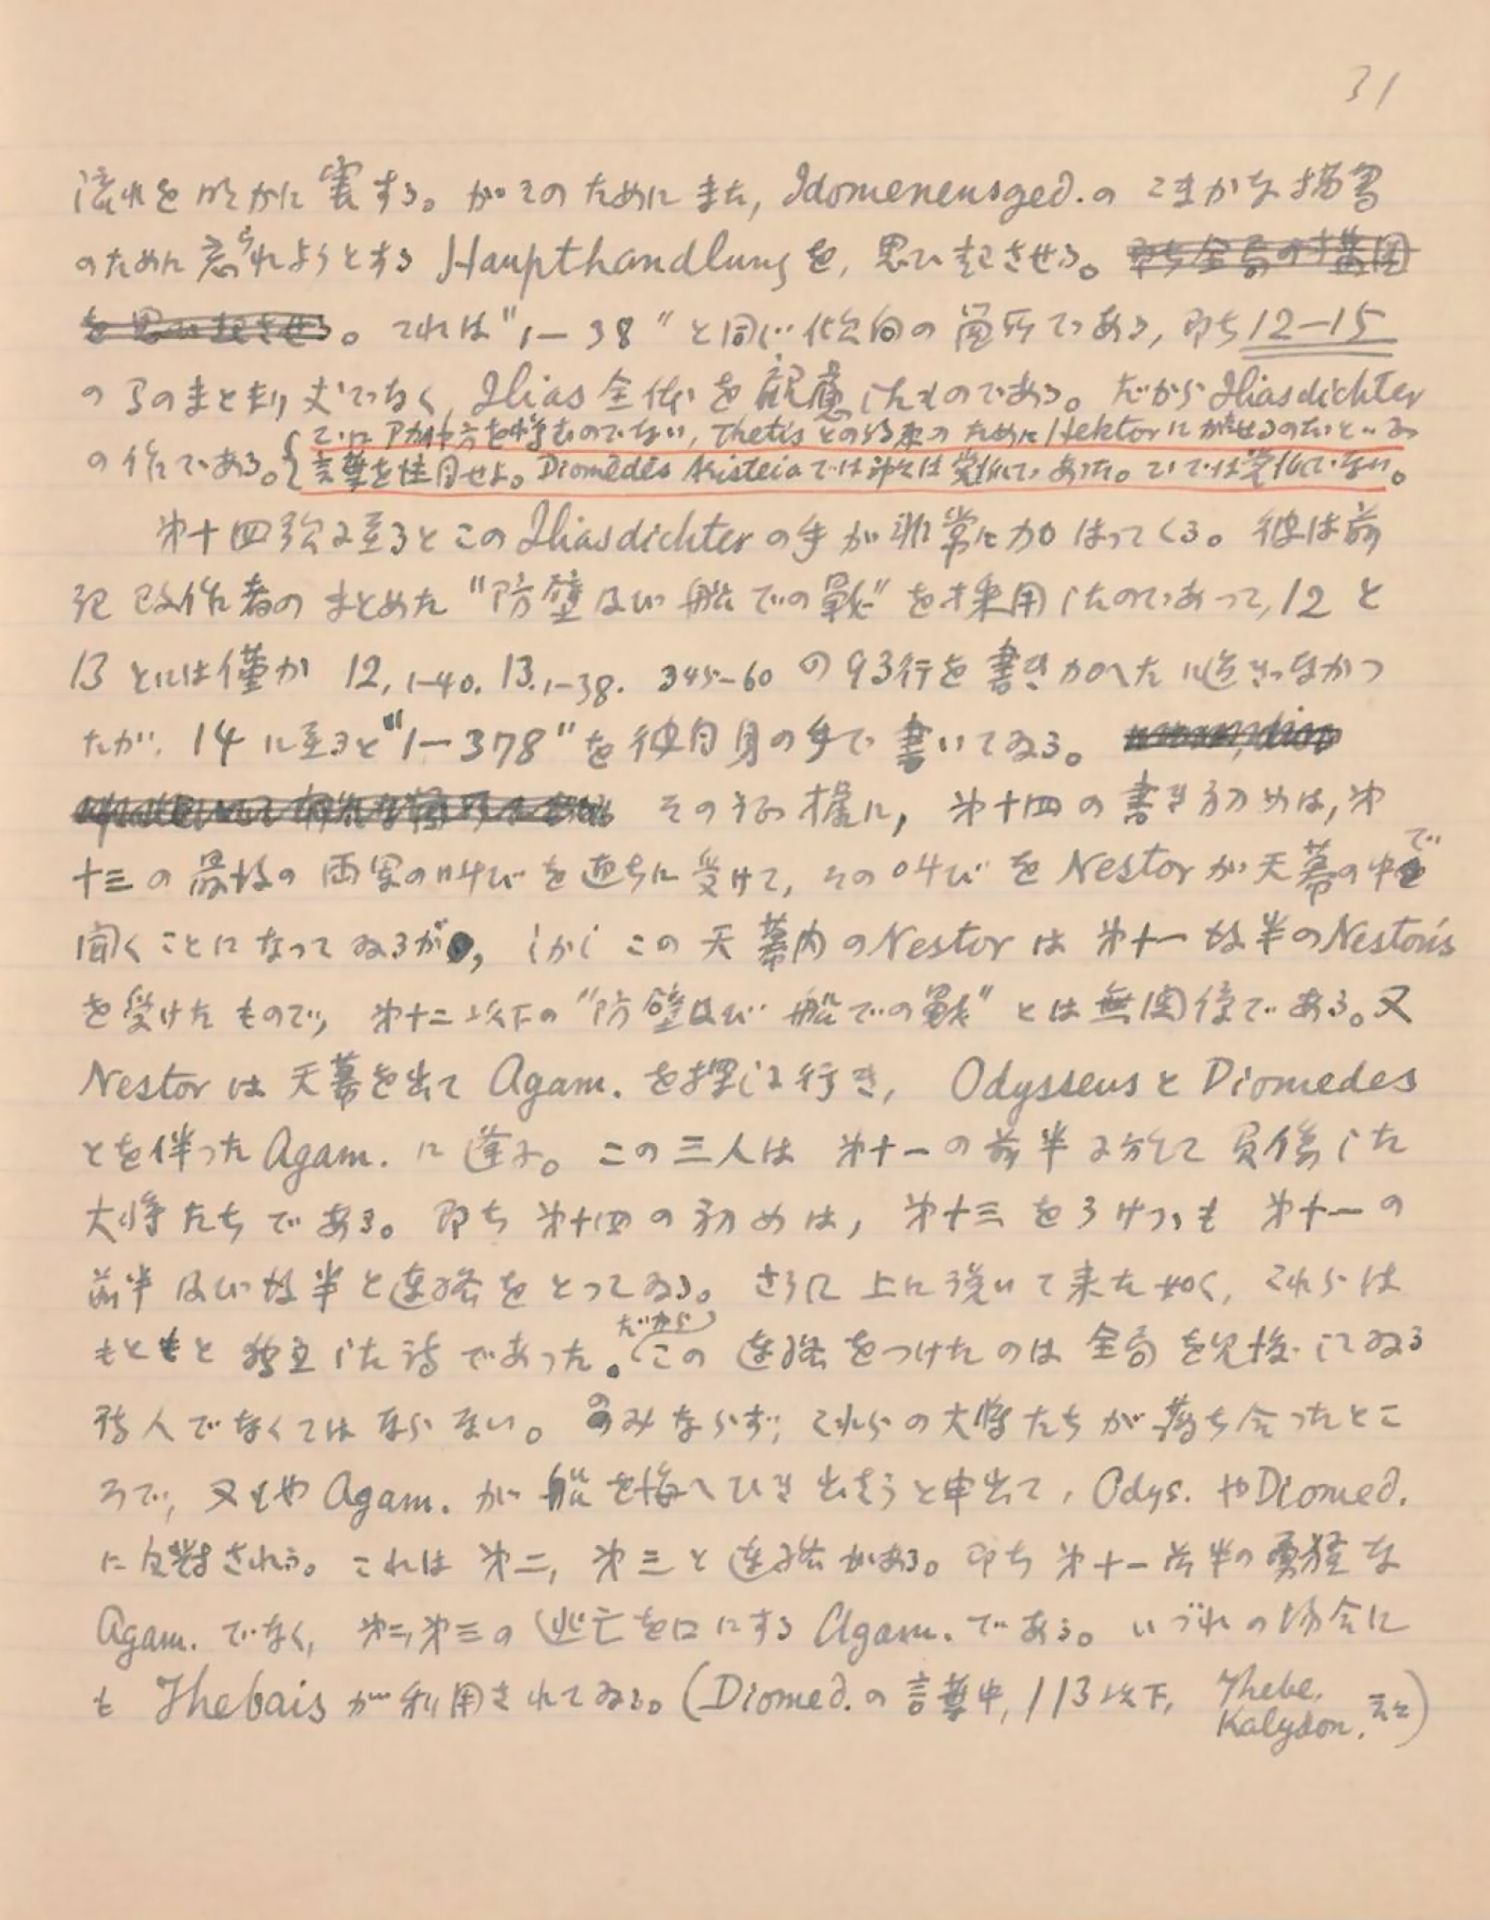 31
流れを明かに害する。がそのためにまた, Idomeneusged. の こまかな描写
のために忘られようとする Haupthandlung を, 思ひ起させる。即ち全局の構図
を思ひ起させる。これは "1—38" と同じ傾向の箇所である, 即ち 12—15
のうのまとまり丈でなく, Ilias 全体を顧慮したものである。だから Iliasdichter
の作である。
Zeus は アカイヤ方を憎むのでない, Thetis との約束のために Hektor に勝せるのだといふ
言葉を注目せよ。Diomedes Aristeia では神々は党派であった。ここでは党派でない。
第十四歌に至るとこの Iliasdichter の手が非常に加はってくる。彼は前
記改作者のまとめた "防壁及び船での戦" を採用したのであって, 12 と
13 とには僅か 12, 1—40. 13. 1—38. 345—60 の 93行を書き加へたに過ぎなかつ
たが, 14 に至ると "1—378" を彼自身の手で書いてゐる。
その証據に, 第十四の書き初めは, 第
十三の最後の両軍の叫びを直ちに受けて, その叫びを Nestor が天幕の中で
聞くことになってゐるが, しかしこの天幕内の Nestor は 第十一後半の Nestoris
を受けたもので, 第十二以下の "防壁及び船での戦" とは無関係である。又
Nestor は天幕を出て Agam. を探しに行き, Odysseus と Diomedes
とを伴った Agam. に逢ふ。この三人は 第十一の前半に於て負傷した
大将たちである。即ち第十四の初めは, 第十三をうけつゝも 第十一の
前半及び後半と連絡をとってゐる。さらに上に説いて来た如く, これらは
もともと独立した詩であった。だからこの連絡をつけたのは全局を見渡してゐる
詩人でなくてはならない。のみならず, これらの大将たちが落ち合ったとこ
ろで, 又もや Agam. が船を海へひき出さうと申出て, Odys. や Diomed.
に反対される。これは第二, 第三と連絡がある。即ち第十一前半の勇猛な
Agam. でなく, 第二,第三の逃亡を口にする Agam. である。いづれの場合に
も Thebais が利用されてゐる。(Diomed. の言葉中, 113 以下, Thebe, Kalydon, 云々)